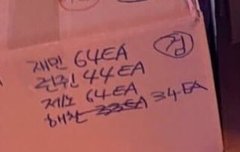 검
재민 64EA
런쥔 44EA
제노 64EA
해찬 33EA 34EA